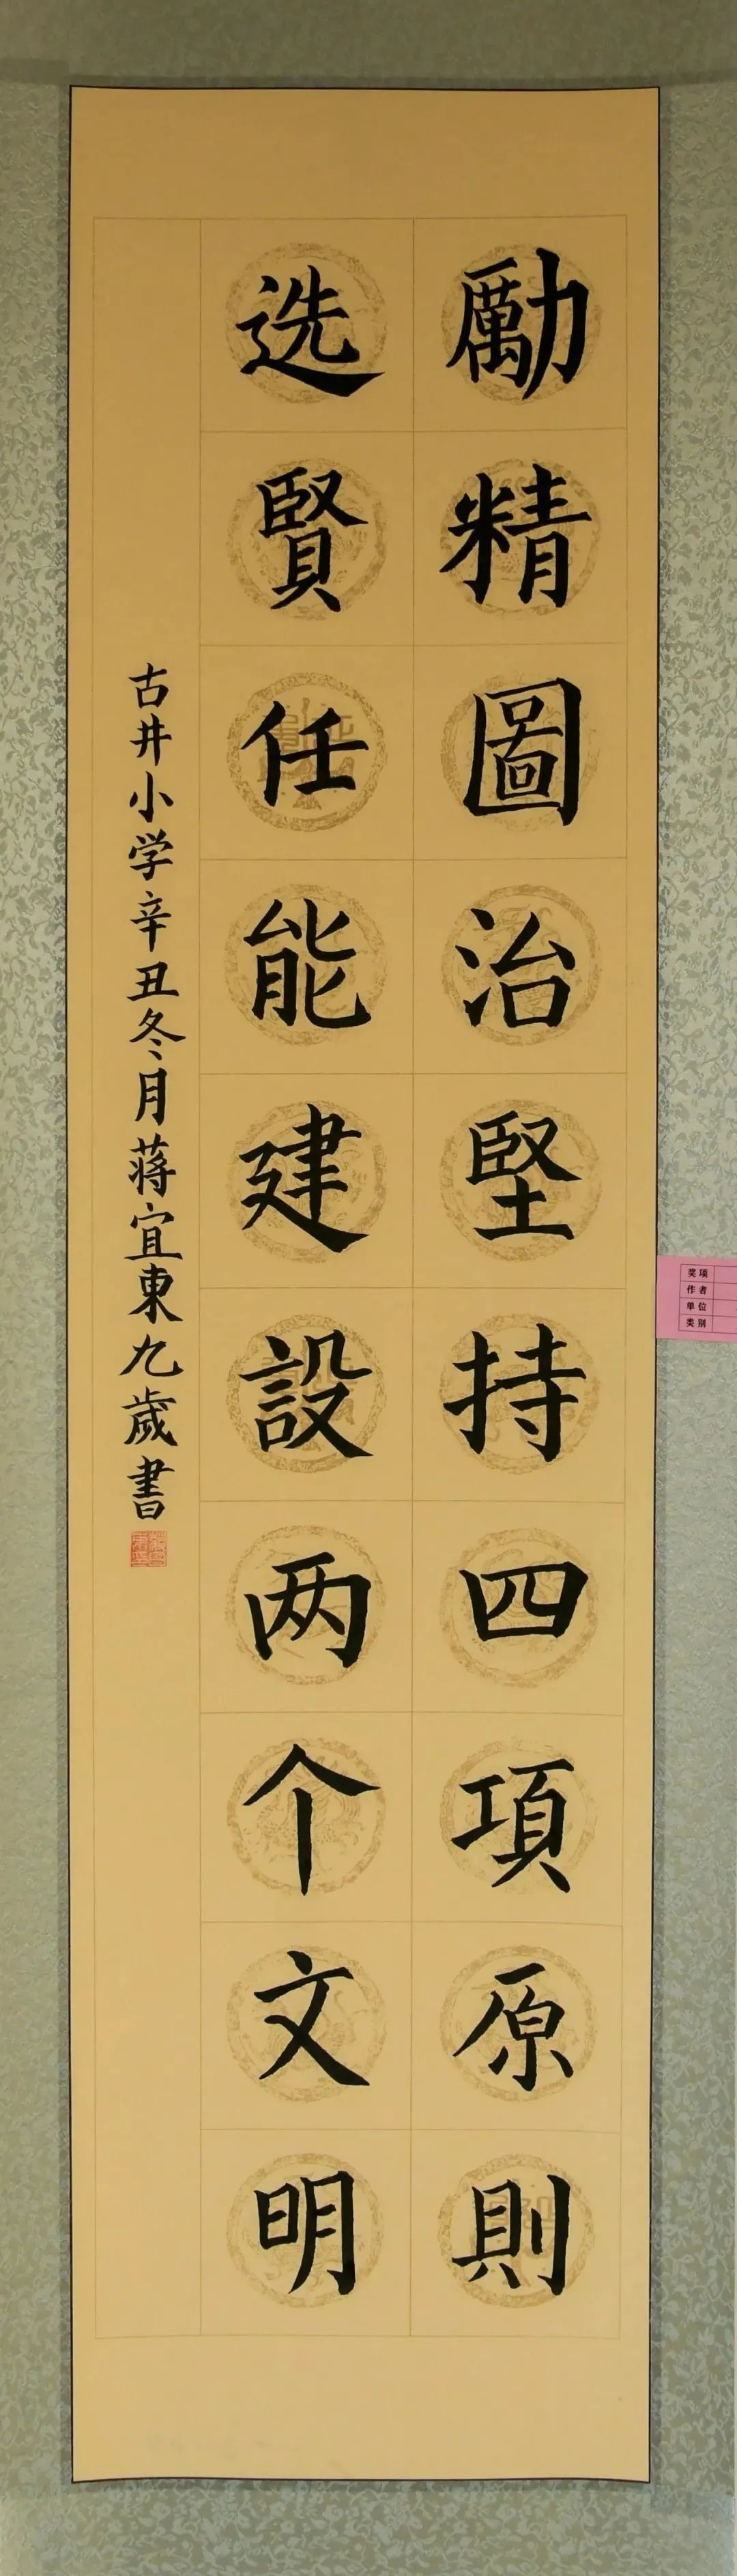 勵精圖治堅持四項原則
选賢任能建設两个文明
古井小学辛丑冬月蒋宜東九歲書
奖项
作者
单位
类别